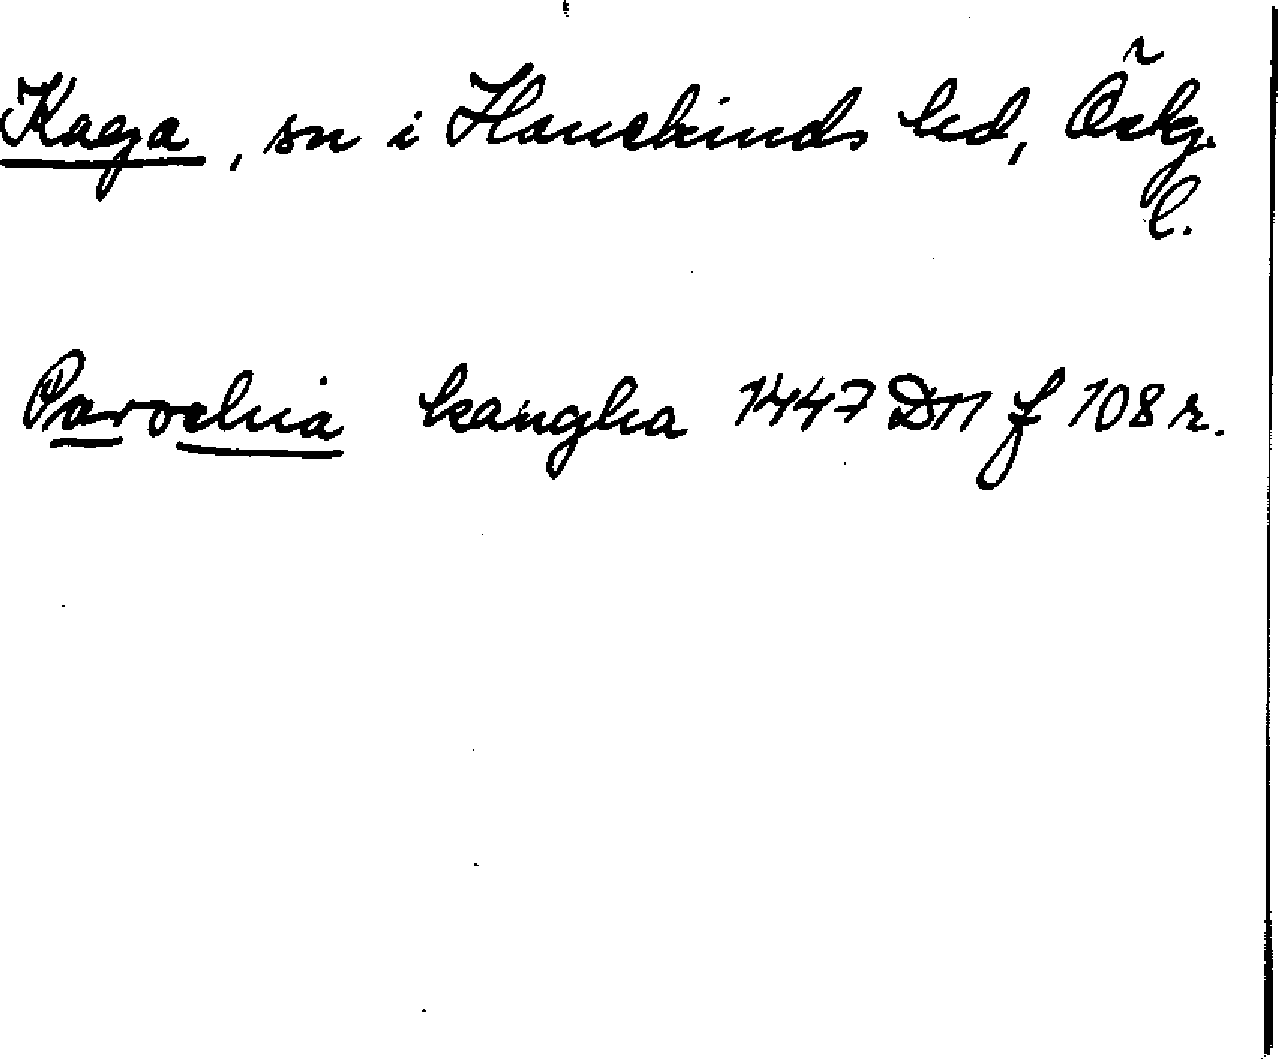 Kaga, sn i Hanekinds hd, Östg.
l.
Parochia kangha 1447 DN f 108 r.